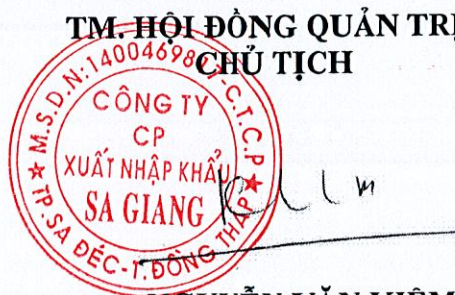 TM. HỘI ĐỒNG QUẢN TRỊ
CHỦ TỊCH
M.S.D.N:140046982 -C.T.C.P
CÔNG TY
CP
XUẤT NHẬP KHẨU
SA GIANG
TP.SA ĐÉC-T.ĐỒNG THÁP